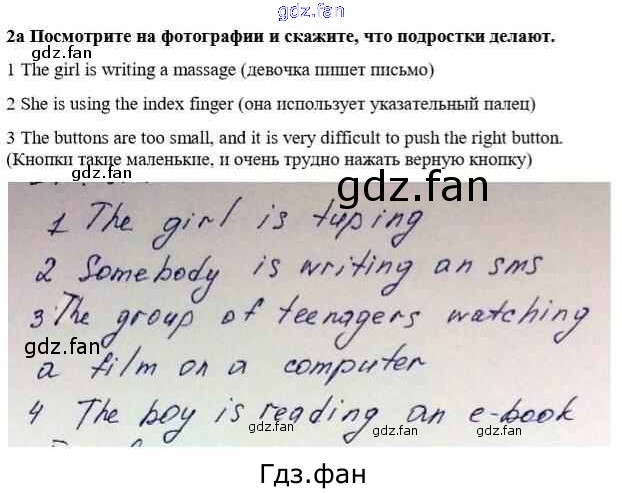 gdz.fan
2а Посмотрите на фотографии и скажите, что подростки делают.
gdz.fan gdz.fan
1 The girl is writing a massage (девочка пишет письмо)
2 She is using the index finger (она использует указательный палец)
3 The buttons are too small, and it is very difficult to push the right button.
(Кнопки такие маленькие, и очень трудно нажать верную кнопку)
gdz.fan gdz.fan
1 The girl is tuping
2 Somebody is writing an sms
3 The group of teenagers watching
gdz.fan
a film on a computer
4 The boy is reading an e-book
gdz.fan gdz.fan
Гдз.фан